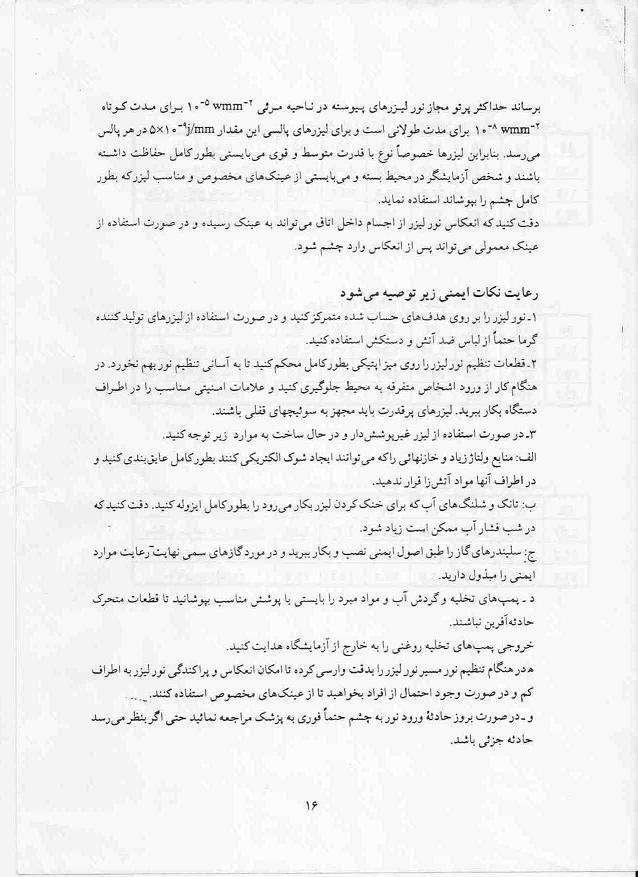 برساند حداکثر پرتو مجاز نور لیزرهای پیوسته در ناحیه مرئی ۱۰⁻⁵ wmm⁻² برای مدت کوتاه
۱۰⁻⁸ wmm⁻² برای مدت طولانی است و برای لیزرهای پالسی این مقدار ۵×۱۰⁻⁹j/mm در هر پالس
می‌رسد. بنابراین لیزرها خصوصاً نوع با قدرت متوسط و قوی می‌بایستی بطور کامل حفاظت داشته
باشند و شخص آزمایشگر در محیط بسته و می‌بایستی از عینک‌های مخصوص و مناسب لیزر که بطور
کامل چشم را بپوشاند استفاده نماید.
دقت کنید که انعکاس نور لیزر از اجسام داخل اتاق می‌تواند به عینک رسیده و در صورت استفاده از
عینک معمولی می‌تواند پس از انعکاس وارد چشم شود.
رعایت نکات ایمنی زیر توصیه می‌شود
۱ـ نور لیزر را بر روی هدف‌های حساب شده متمرکز کنید و در صورت استفاده از لیزرهای تولید کننده
گرما حتماً از لباس ضد آتش و دستکش استفاده کنید.
۲ـ قطعات تنظیم نور لیزر را روی میز اپتیکی بطور کامل محکم کنید تا به آسانی تنظیم نور بهم نخورد. در
هنگام کار از ورود اشخاص متفرقه به محیط جلوگیری کنید و علامات امنیتی مناسب را در اطراف
دستگاه بکار ببرید. لیزرهای پرقدرت باید مجهز به سوئیچهای قفلی باشند.
۳ـ در صورت استفاده از لیزر غیرپوشش‌دار و در حال ساخت به موارد زیر توجه کنید.
الف: منابع ولتاژ زیاد و خازنهائی را که می‌توانند ایجاد شوک الکتریکی کنند بطور کامل عایق‌بندی کنید و
در اطراف آنها مواد آتش‌زا قرار ندهید.
ب: تانک و شلنگ‌های آب که برای خنک کردن لیزر بکار می‌رود را بطور کامل ایزوله کنید. دقت کنید که
در شب فشار آب ممکن است زیاد شود.
ج: سلیندرهای گاز را طبق اصول ایمنی نصب و بکار ببرید و در مورد گازهای سمی نهایت رعایت موارد
ایمنی را مبذول دارید.
د ـ پمپ‌های تخلیه و گردش آب و مواد مبرد را بایستی با پوشش مناسب بپوشانید تا قطعات متحرک
حادثه‌آفرین نباشند.
خروجی پمپ‌های تخلیه روغنی را به خارج از آزمایشگاه هدایت کنید.
ه در هنگام تنظیم نور مسیر نور لیزر را بدقت وارسی کرده تا امکان انعکاس و پراکندگی نور لیزر به اطراف
کم و در صورت وجود احتمال از افراد بخواهید تا از عینک‌های مخصوص استفاده کنند.
و ـ در صورت بروز حادثهٔ ورود نور به چشم حتماً فوری به پزشک مراجعه نمائید حتی اگر بنظر می‌رسد
حادثه جزئی باشد.
۱۶